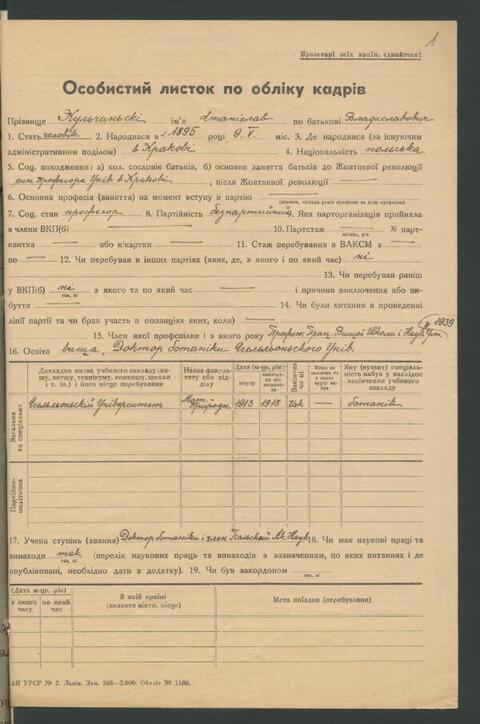 1
Пролетарі всіх країн, єднайтеся!
Особистий листок по обліку кадрів
Прізвище Кульчиньскі ім'я Станіслав по батькові Владиславович
1. Стать чоловік 2. Народився в 1895 році 9. V. міс. 3. Де народився (за існуючим
адміністративним поділом) в Кракові 4. Національність польська
5. Соц. походження: а) кол. сословіє батьків, б) основне заняття батьків до Жовтневої революції
син професора Унів. в Кракові, після Жовтневої революції
6. Основна професія (заняття) на момент вступу в партію
7. Соц. стан професор 8. Партійність безпартійний Яка парторганізація прийняла
в члени ВКП(б) 10. Партстаж № парт-
місяць, рік
квитка або к/картки 11. Стаж перебування в ВЛКСМ з
по 12. Чи перебував в інших партіях (яких, де, з якого і по який час) ні
13. Чи перебував раніш
у ВКП(б) ні з якого та по який час і причини виключення або ви-
так, ні
буття 14. Чи були хитання в проведенні
лінії партії та чи брав участь в опозиціях, яких, коли)
15. Член якої профспілки і з якого року Профсп. Прац. Вищої Школи і Наук. Уст. з 1939
16. Освіта вища, Доктор ботаніки Ягельонського Унів.
Докладна назва учбового закладу (ви-
шу, втушу, технікуму, комвишу, школи
і т. ін.) і його місце перебування
Назва факуль-
тету або від-
ділу
Дата (м-ць, рік)
вступу
Закінчив чи ні
Яку (вузьку) спеціаль-
ність набув у наслідок
закінчення учбового
закладу
Загальна
та спеціальна
Ягельонській Університет Мат. Природн. 1913 1918 так — ботанік
Партійно-
політична
17. Учена ступінь (звання) Доктор ботаніки і член Польської Ак. Наук 18. Чи має наукові праці та
винаходи так (перелік наукових праць та винаходів з зазначенням, по яких питаннях і де
так, ні
опубліковані, необхідно дати в додатку). 19. Чи був закордоном
так, ні
(Дата м-ць, рік)
з якого
часу
по який
час
В якій країні
(вказати місто, місце)
Мета поїздки (перебування)
АН УРСР № 2. Львів. Зам. 348—2.000. Обліт № 1186.